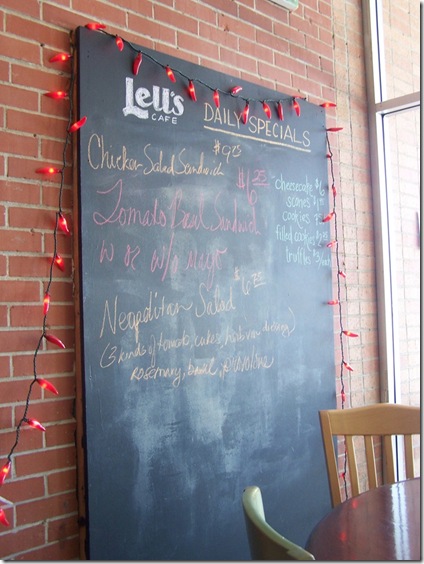 Lell's
CAFE
DAILY SPECIALS
Chicken Salad Sandwich $9.25
Tomato Basil Sandwich $6.25
w or w/o mayo
Neopolitan Salad $6.25
(3 kinds of tomato, cukes, herb-van dressing)
rosemary, basil,
cheesecake $6
scones $1
cookies
filled cookies
truffles $3/each